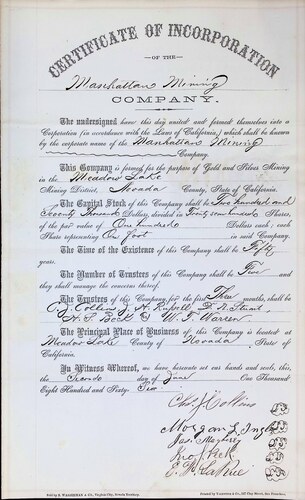 CERTIFICATE OF INCORPORATION
OF THE
Manhattan Mining
COMPANY.
The undersigned have this day united and formed themselves into a
Corporation (in accordance with the Laws of California,) which shall be known
by the corporate name of the Manhattan Mining
Company.
This Company is formed for the purpose of Gold and Silver Mining
in the Meadow Lake
Mining District, Nevada County, State of California.
The Capital Stock of this Company shall be Two hundred and
Seventy Thousand Dollars, divided in Twenty seven hundred Shares,
of the par value of One hundred Dollars each; each
Share representing One foot in said Company.
The Time of the Existence of this Company shall be Fifty
years.
The Number of Trustees of this Company shall be Five and
they shall manage the concerns thereof.
The Trustees of this Company, for the first Three months, shall be
W. T. Warren
The Principal Place of Business of this Company is located at
Meadow Lake County of Nevada State of
California.
In Witness Whereof, we have hereunto set our hands and seals, this,
the Second day of June One Thousand
Eight Hundred and Sixty- Six
Chs. J. Collins
Morgan L.
Jas.
Geo.
E. R.